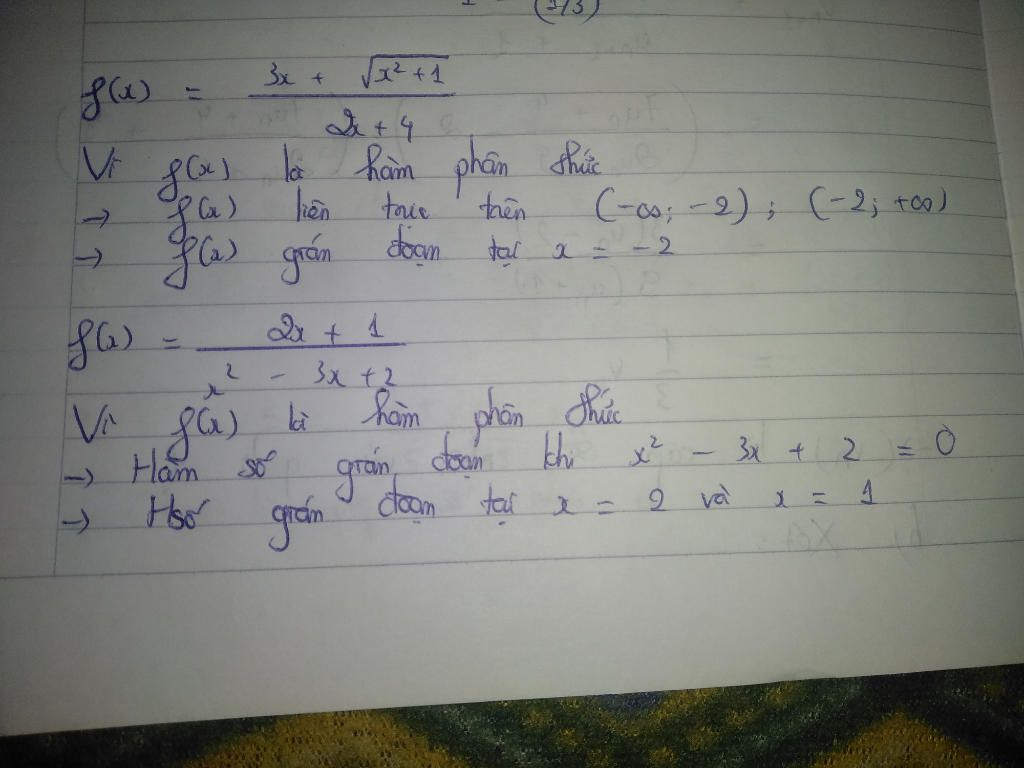 (1/3)
f(x) = (3x + √(x² + 1)) / (2x + 4)
Vì f(x) là hàm phân thức
→ f(x) liên tục trên (-∞; -2); (-2; +∞)
→ f(x) gián đoạn tại x = -2
f(x) = (2x + 1) / (x² - 3x + 2)
Vì f(x) là hàm phân thức
→ Hàm số gián đoạn khi x² - 3x + 2 = 0
→ Hsố gián đoạn tại x = 2 và x = 1